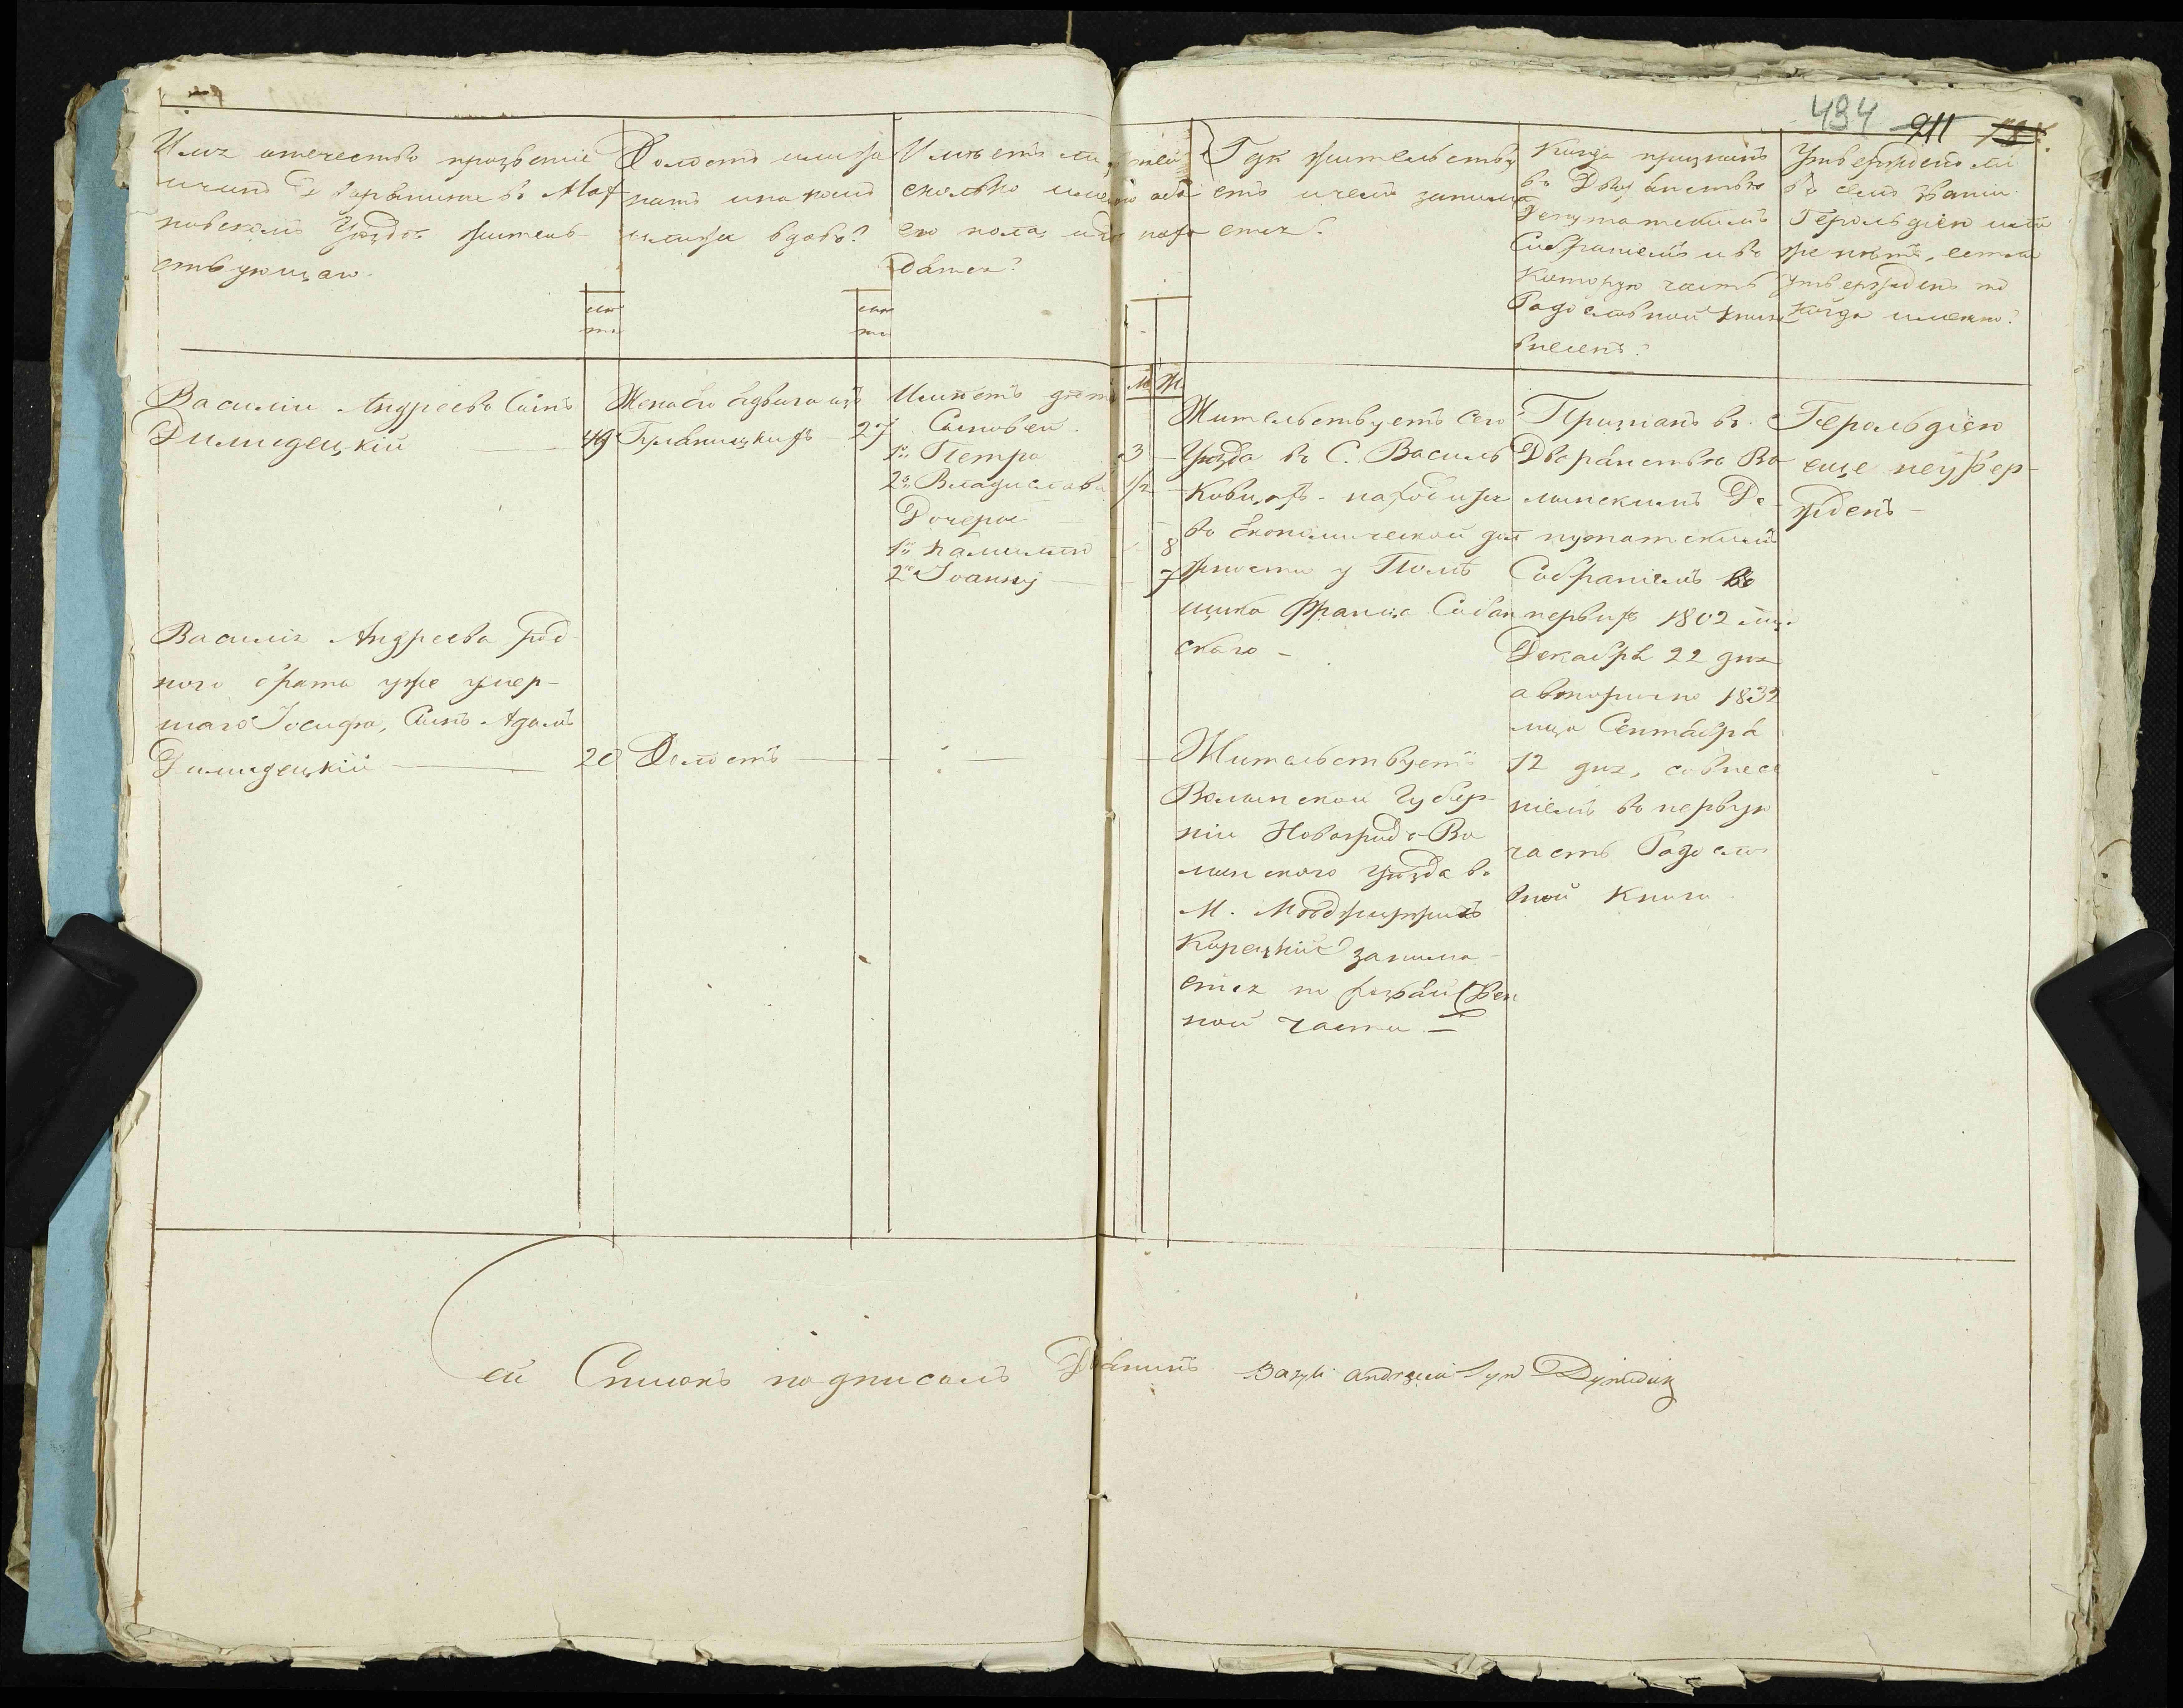 434 911
Имя отечество прозвание
и чинъ Дворянина въ Мах-
новскомъ Уѣздѣ житель-
ствующаго.
лѣ
та
Холостъ или же
натъ и на комъ
или же вдовъ?
лѣ
та
Имѣетъ ли дѣтей
сколько именно обо
его пола, и гдѣ нахо
дятся?
М Ж
Гдѣ жительству
етъ и чемъ занима
ется?
Когда признанъ
въ Дворянствѣ
Депутатскимъ
Собраніемъ и въ
которую часть
Родословной Книги
внесенъ?
Утвержденъ ли
въ семъ званіи
Герольдіею или
же нѣтъ, естли
утвержденъ то
когда именно?
Василій Андреевъ Сынъ
Дилидецкій 49
Жена его Ядвига изъ
27
Имѣетъ дѣтей
Сыновей.
1й Петра 3
2й Владислава 1/2
Дочерей
1ю Камилію 8
2ю Іоанну 7
Жительствуетъ сего
Уѣзда въ С. Василь
ковцахъ находится
въ Економической дол
жности у Помѣ
щика Франца Собан
скаго
Признанъ въ
Дворянствѣ Во
лынскимъ Де-
путатскимъ
Собраніемъ въ
первыхъ 1802 мца
Декабря 22 дня
а вторично 1832
мца Сентября
12 дня, со внесе
ніемъ въ первую
часть Родосло
вной Книги.
Герольдіею
еще неутвер-
жденъ
Василія Андреева род-
ного брата уже умер-
шаго Іосифа, Сынъ Адамъ
Дилидецкій 20
Холостъ
Жительствуетъ
Волынской Губер-
ніи Новоградъ-Во
лынского Уѣзда въ
М.
Корецкій занима-
ется по хозяйствен
ной части
Сей Списокъ подписалъ Дворянинъ Bazyli Andrzeia Syn